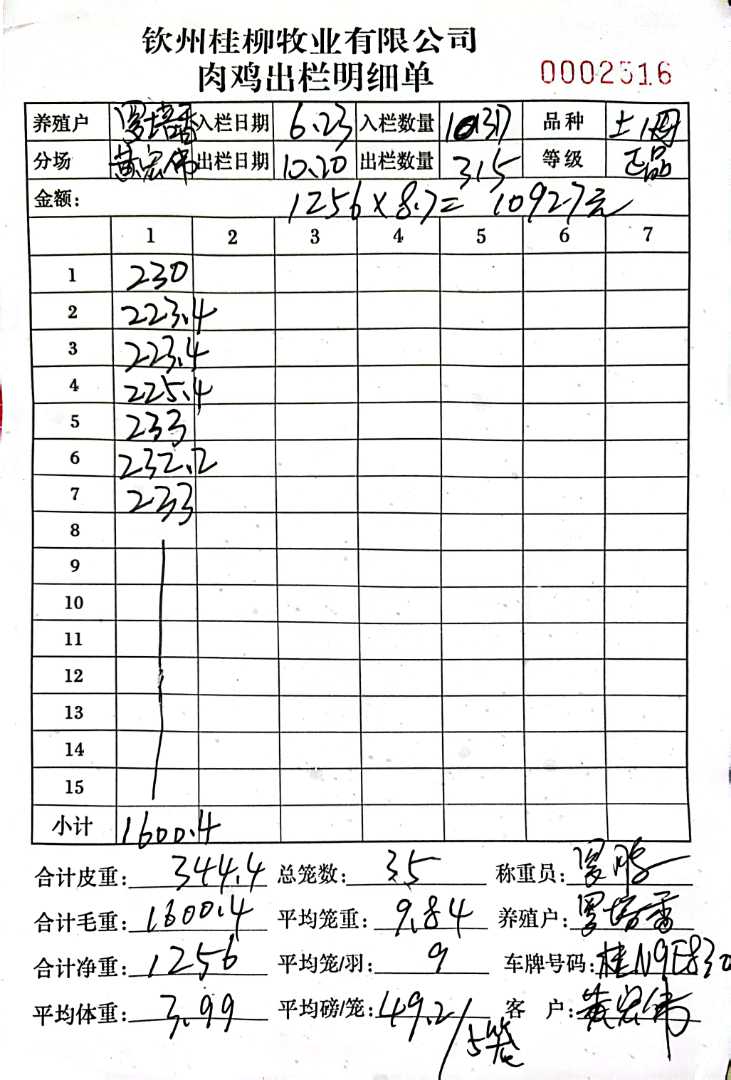 钦州桂柳牧业有限公司
肉鸡出栏明细单 0002316
养殖户 罗培香 入栏日期 6.23 入栏数量 10137 品种 土1
分场 黄宏伟 出栏日期 10.20 出栏数量 315 等级 正品
金额: 1256×8.7= 10927元
1 2 3 4 5 6 7
1 230
2 223.4
3 223.4
4 225.4
5 233
6 232.2
7 233
8
9
10
11
12
13
14
15
小计 1600.4
合计皮重: 344.4 总笼数: 35 称重员: 罗
合计毛重: 1600.4 平均笼重: 9.84 养殖户: 罗培香
合计净重: 1256 平均笼/羽: 9 车牌号码: 桂N9E830
平均体重: 3.99 平均磅/笼: 49.2/5笼 客 户: 黄宏伟